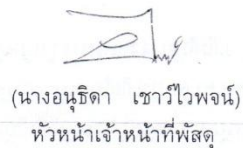 (นางอนุธิดา เชาว์ไวพจน์)
หัวหน้าเจ้าหน้าที่พัสดุ